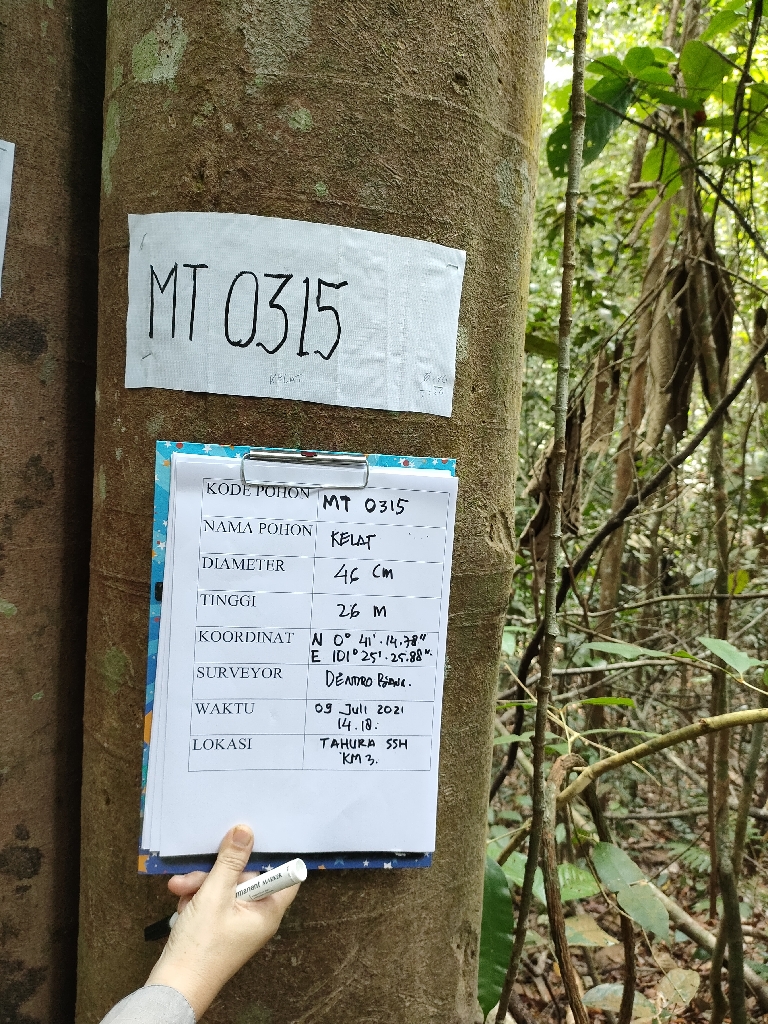 MT 0315
KELAT
KODE POHON MT 0315
NAMA POHON KELAT
DIAMETER 46 Cm
TINGGI 26 M
KOORDINAT N 0° 41'.14.78"
E 101° 25'.25.88".
SURVEYOR
WAKTU 09 Juli 2021
14.18.
LOKASI TAHURA SSH
KM 3.
permanent MARKER